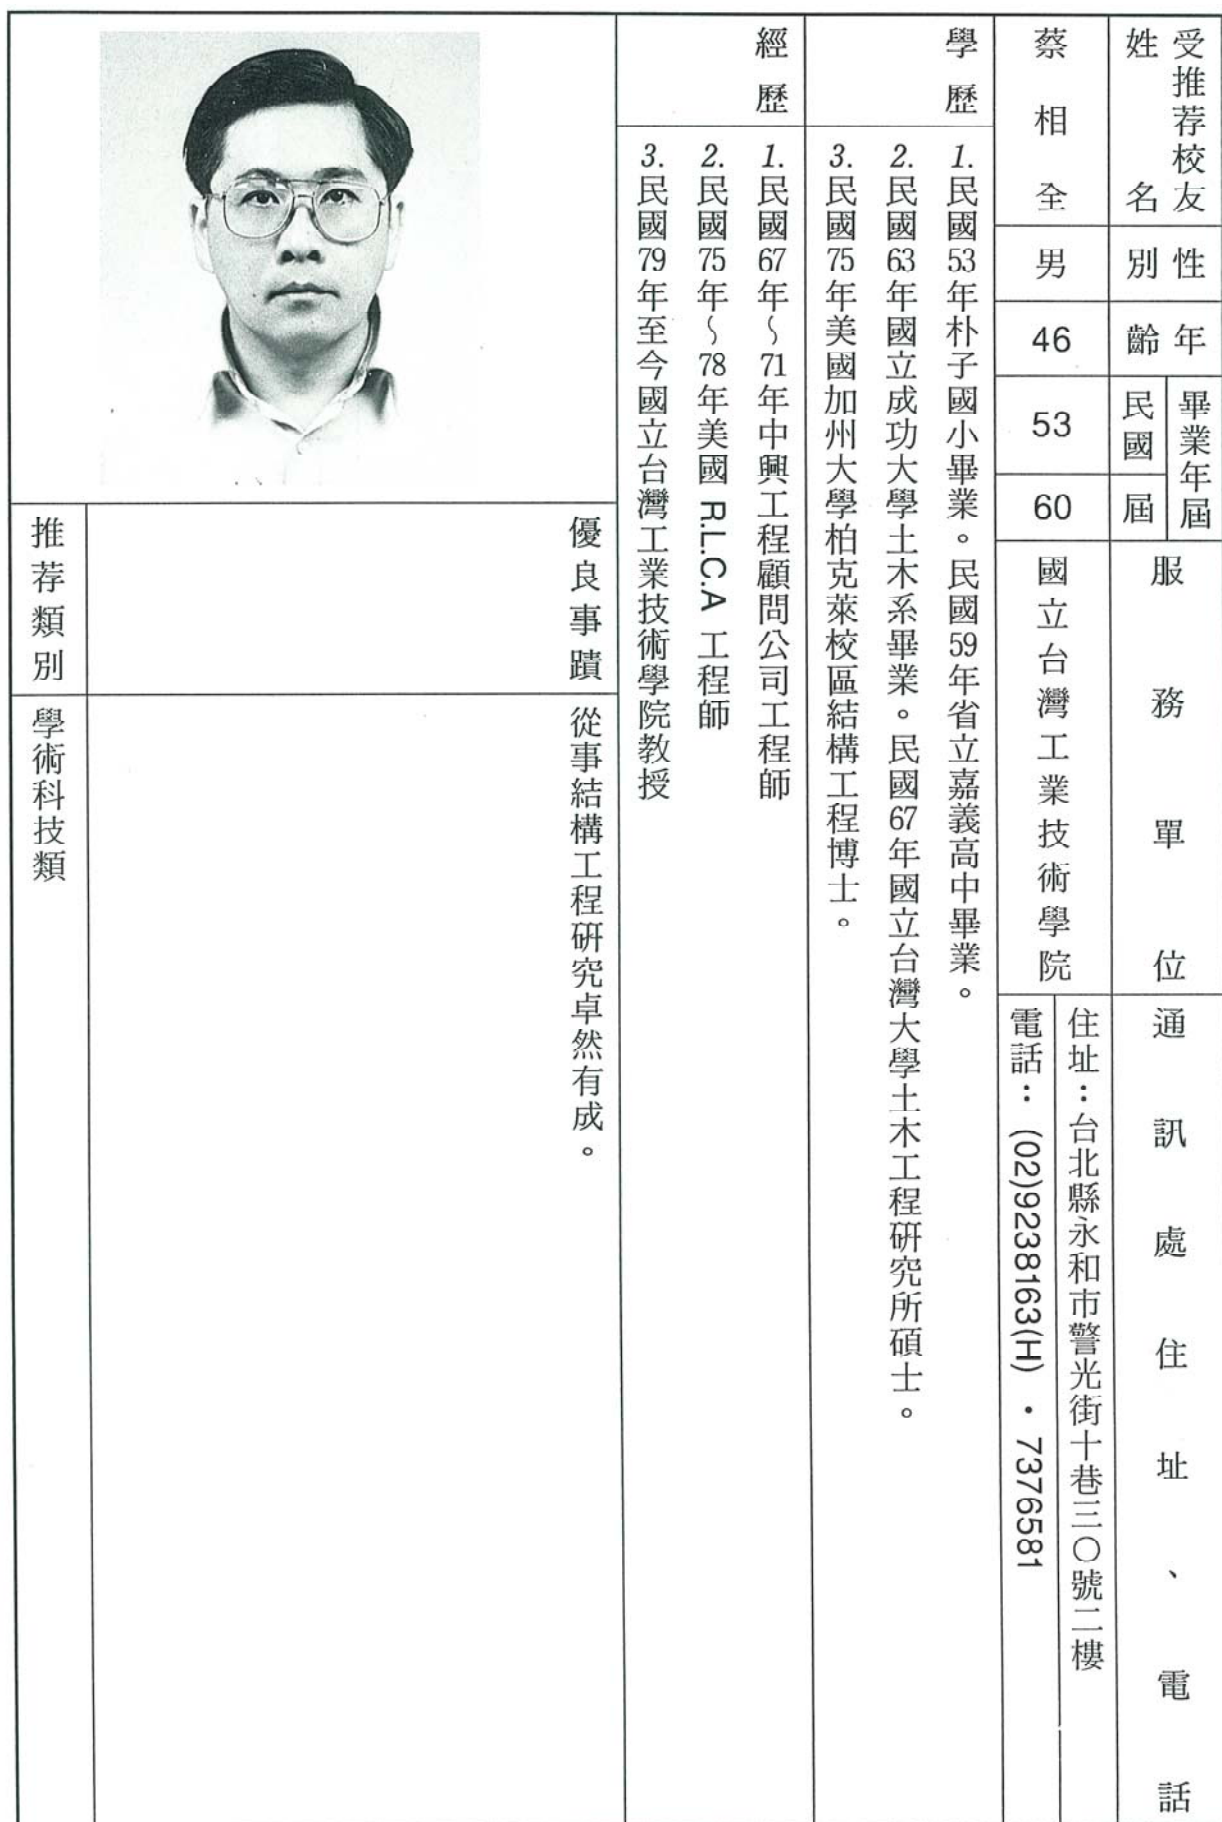 受推荐校友
姓名
蔡相全
性別
男
年齡
46
畢業年屆
民國
53
屆
60
服務單位
國立台灣工業技術學院
通訊處住址、電話
住址：台北縣永和市警光街十巷三〇號二樓
電話：(02)9238163(H)・7376581
學歷
1.民國53年朴子國小畢業。民國59年省立嘉義高中畢業。
2.民國63年國立成功大學土木系畢業。民國67年國立台灣大學土木工程研究所碩士。
3.民國75年美國加州大學柏克萊校區結構工程博士。
經歷
1.民國67年～71年中興工程顧問公司工程師
2.民國75年～78年美國 R.L.C.A 工程師
3.民國79年至今國立台灣工業技術學院教授
優良事蹟
從事結構工程研究卓然有成。
推荐類別
學術科技類